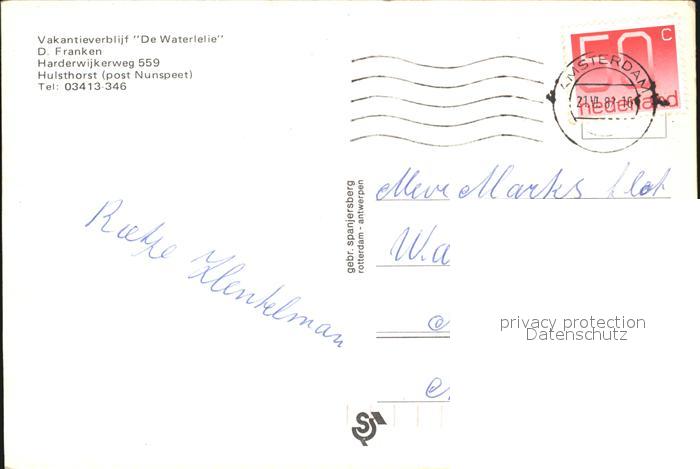 Vakantieverblijf "De Waterlelie"
D. Franken
Harderwijkerweg 559
Hulsthorst (post Nunspeet)
Tel: 03413-346
50 C
nederland
AMSTERDAM
gebr. spanjersberg
rotterdam - antwerpen
Mevr Marks
W.a
Henkelman
privacy protection
Datenschutz